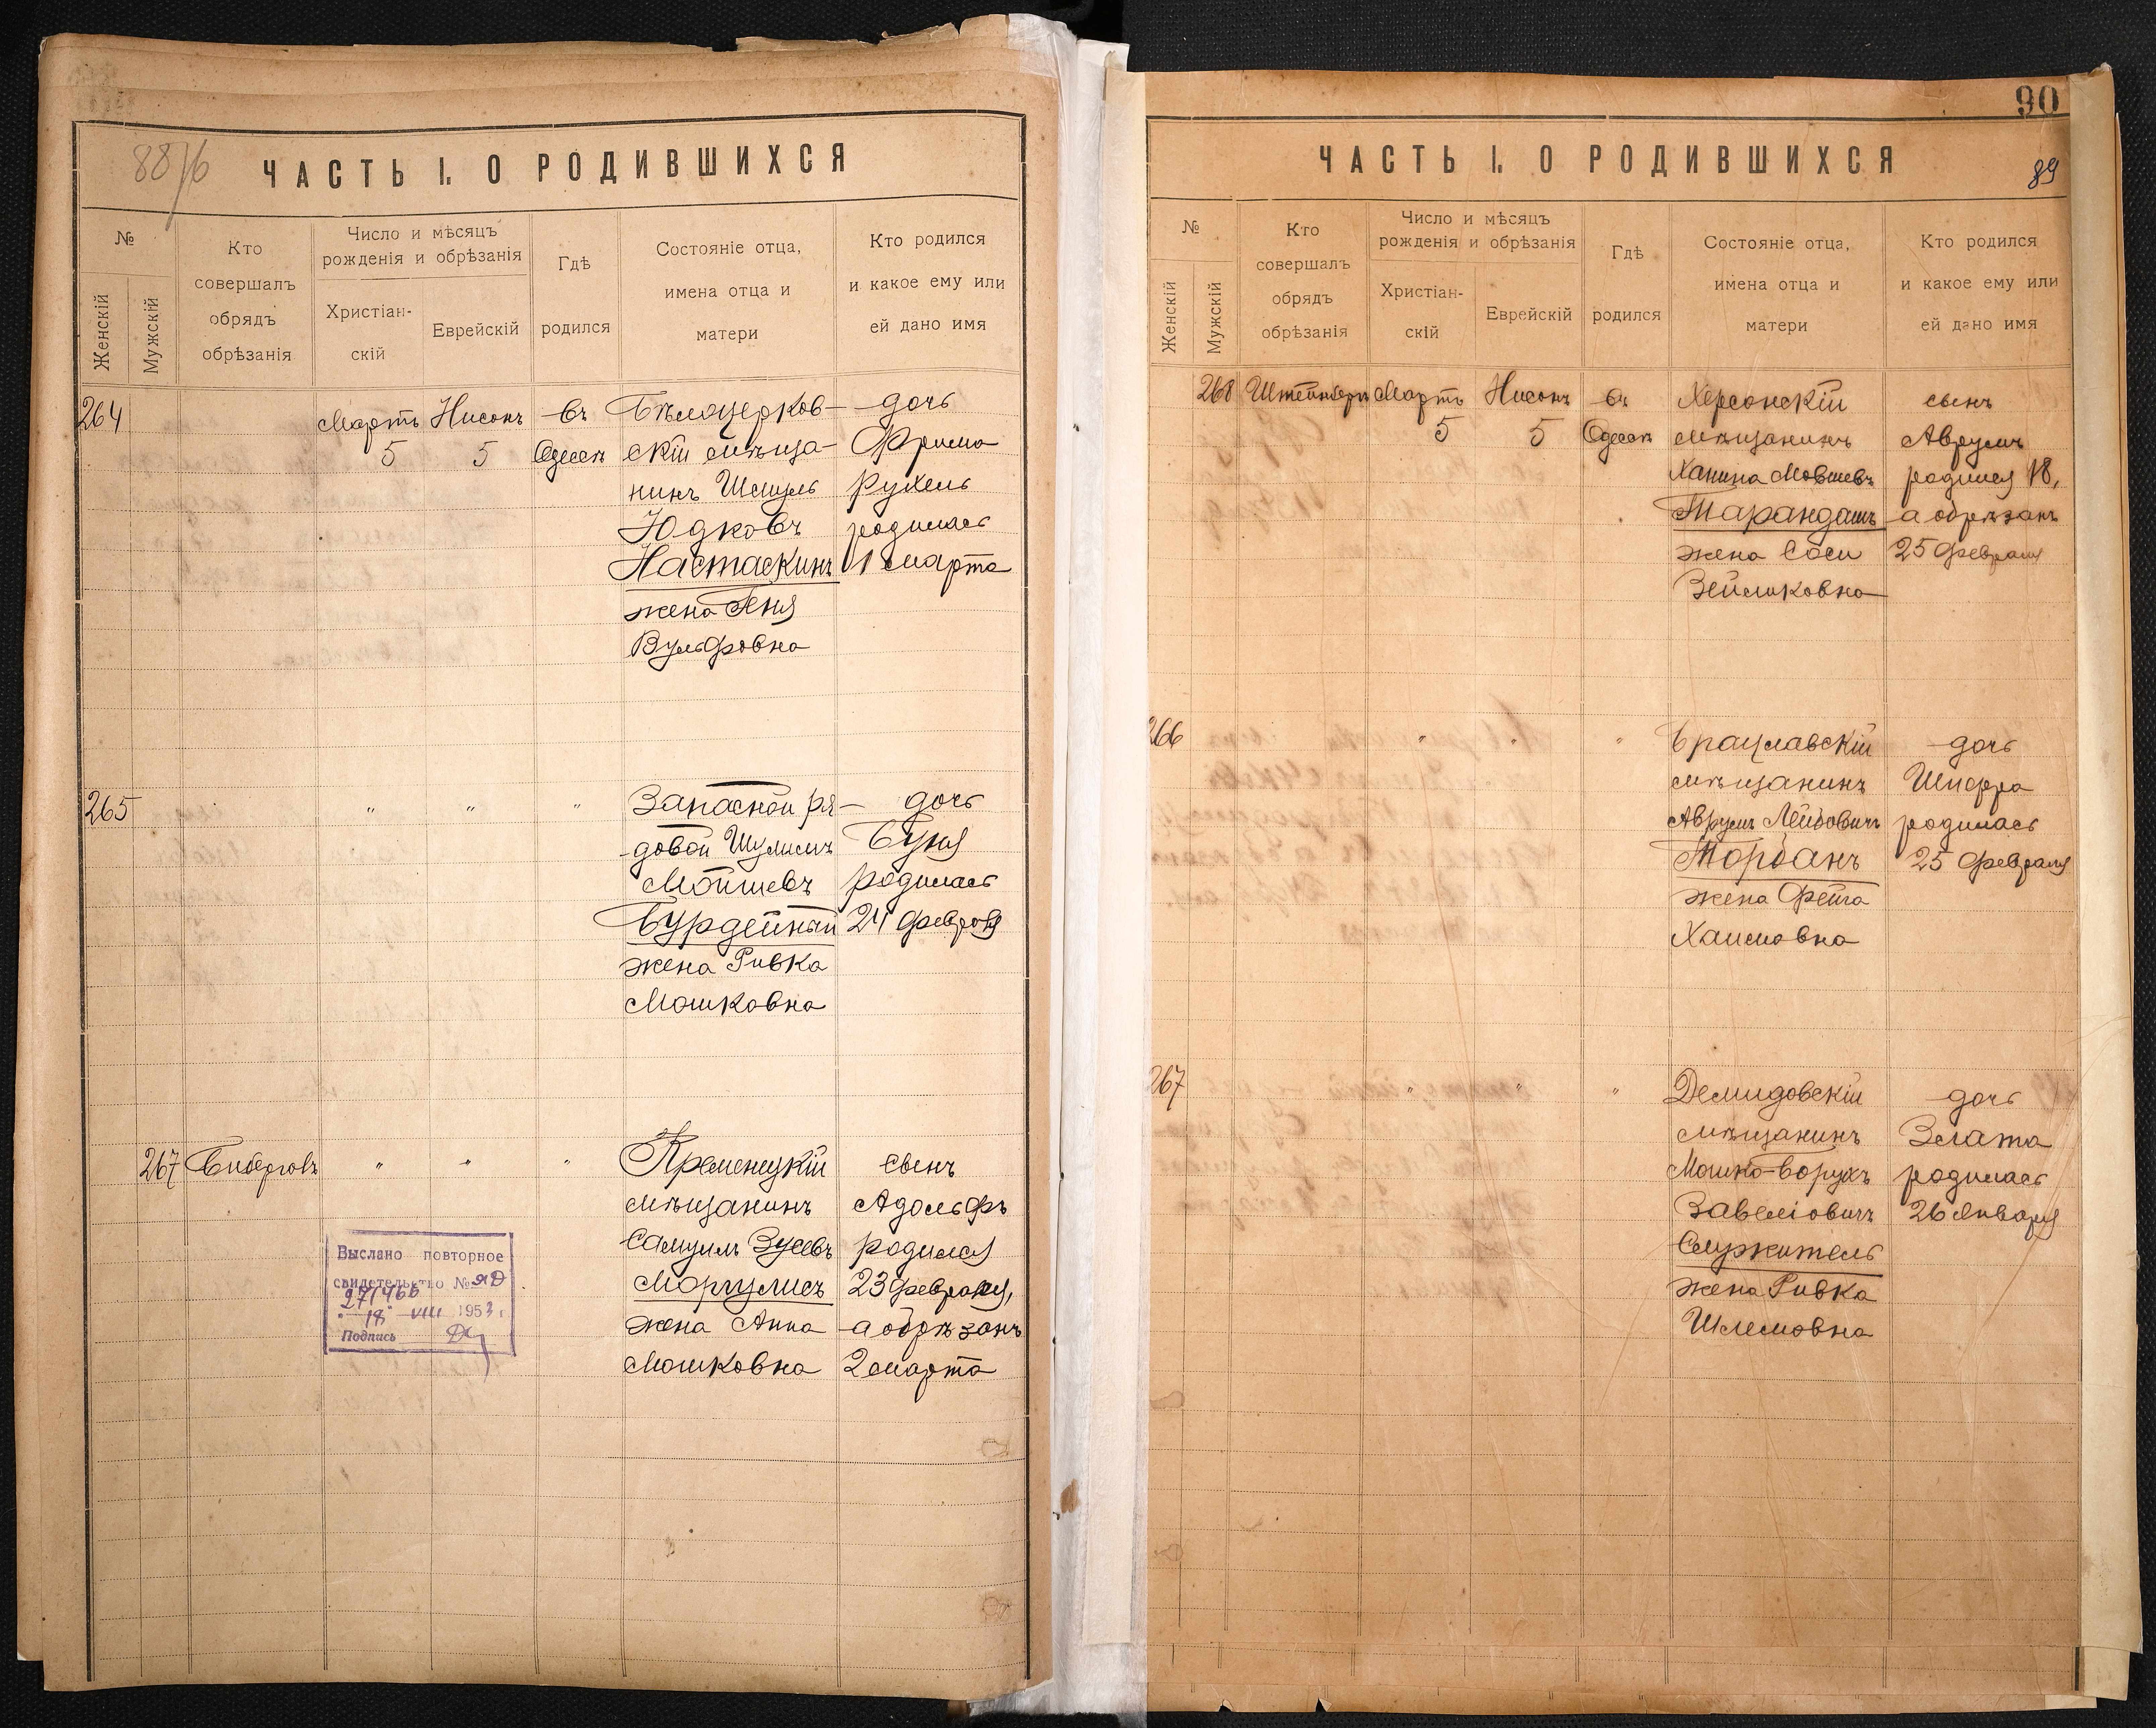 88/б
ЧАСТЬ I. О РОДИВШИХСЯ
№
Женскій
Мужскій
Кто
совершалъ
обрядъ
обрѣзанія
Число и мѣсяцъ
рожденія и обрѣзанія
Христіан-
скій
Еврейскій
Гдѣ
родился
Состояніе отца,
имена отца и
матери
Кто родился
и какое ему или
ей дано имя
264
Мартъ
5
Нисонъ
5
въ
Одессѣ
Бѣлоцерков-
скій мѣща-
нинъ Шмуль
Юдковъ
Настаскинъ
жена Геня
Вульфовна
дочь
Фрима
Рухель
родилась
1 марта
265
"
"
"
Запасной ря-
довой Шулимъ
Мойшевъ
Бурдейный
жена Ривка
Мошковна
дочь
Буня
родилась
24 февраля
267
"
"
"
Кременецкій
мѣщанинъ
Самуилъ Зусевъ
Моргулисъ
жена Анна
Мошковна
сынъ
Адольфъ
родился
23 февраля,
а обрѣзанъ
2 марта
Выслано повторное
свидетельство № ЯД
271466
18 VIII 1953 г.
Подпись
90
ЧАСТЬ I. О РОДИВШИХСЯ
89
№
Женскій
Мужскій
Кто
совершалъ
обрядъ
обрѣзанія
Число и мѣсяцъ
рожденія и обрѣзанія
Христіан-
скій
Еврейскій
Гдѣ
родился
Состояніе отца,
имена отца и
матери
Кто родился
и какое ему или
ей дано имя
268
Штейнбергъ
Мартъ
5
Нисонъ
5
въ
Одессѣ
Херсонскій
мѣщанинъ
Ханина Мовшевъ
Тарандашъ
жена Соси
Зейликовна
сынъ
Аврумъ
родился 18,
а обрѣзанъ
25 февраля
266
"
"
"
Брацлавскій
мѣщанинъ
Аврумъ Лейбовичъ
Торбанъ
жена Фейга
Хаимовна
дочь
Шифра
родилась
25 февраля
267
"
"
"
Демидовскій
мѣщанинъ
Мошко-Борухъ
Завеліовичъ
Служитель
жена Ривка
Шлемовна
дочь
Злата
родилась
26 января